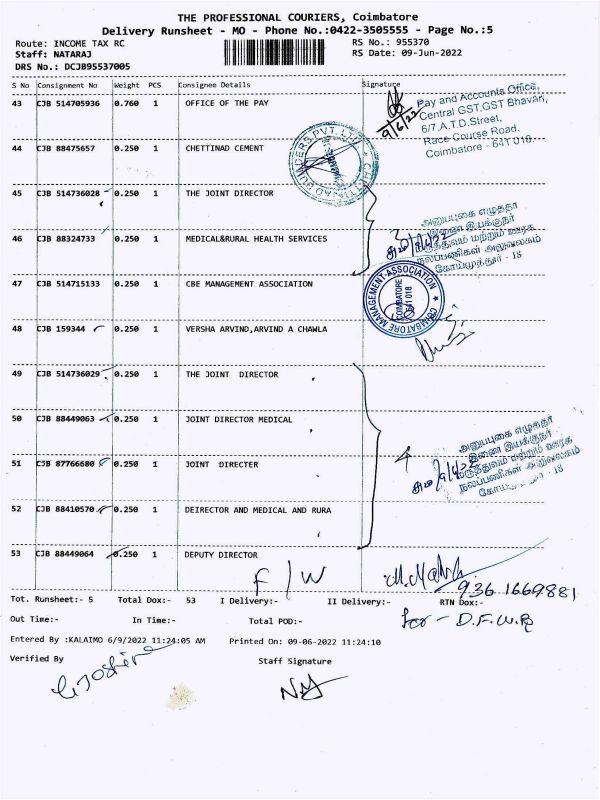 THE PROFESSIONAL COURIERS, Coimbatore
Delivery Runsheet - MO - Phone No.:0422-3505555 - Page No.:5
Route: INCOME TAX RC
RS No.: 955370
Staff: NATARAJ
RS Date: 09-Jun-2022
DRS No.: DCJB95537005
S No Consignment No Weight PCS Consignee Details Signature
43 CJB 514705936 0.760 1 OFFICE OF THE PAY
9/6/22
Pay and Accounts Office,
Central GST,GST Bhavan,
6/7,A.T.D.Street,
Race Course Road,
Coimbatore - 641 018
44 CJB 88475657 0.250 1 CHETTINAD CEMENT
45 CJB 514736028 0.250 1 THE JOINT DIRECTOR
அனுப்புகை எழுத்தர்
இணை இயக்குநர்
மருத்துவம் மற்றும் ஊரக
நலப்பணிகள் அலுவலகம்
கோயமுத்தூர் - 18
3
46 CJB 88324733 0.250 1 MEDICAL&RURAL HEALTH SERVICES
47 CJB 514715133 0.250 1 CBE MANAGEMENT ASSOCIATION
COIMBATORE MANAGEMENT ASSOCIATION
COIMBATORE
641 018
48 CJB 159344 0.250 1 VERSHA ARVIND,ARVIND A CHAWLA
49 CJB 514736029 0.250 1 THE JOINT DIRECTOR
50 CJB 88449063 0.250 1 JOINT DIRECTOR MEDICAL
4
அனுப்புகை எழுத்தர்
இணை இயக்குநர்
மருத்துவம் மற்றும் ஊரக
நலப்பணிகள் அலுவலகம்
கோயமுத்தூர் - 18
51 CJB 87766680 0.250 1 JOINT DIRECTER
52 CJB 88410570 0.250 1 DEIRECTOR AND MEDICAL AND RURA
53 CJB 88449064 0.250 1 DEPUTY DIRECTOR
F/W
936 1669881
Tot. Runsheet:- 5 Total Dox:- 53 I Delivery:- II Delivery:- RTN Dox:-
Out Time:- In Time:- Total POD:-
for - D.F.W.B
Entered By :KALAIMO 6/9/2022 11:24:05 AM Printed On: 09-06-2022 11:24:10
Verified By
Staff Signature